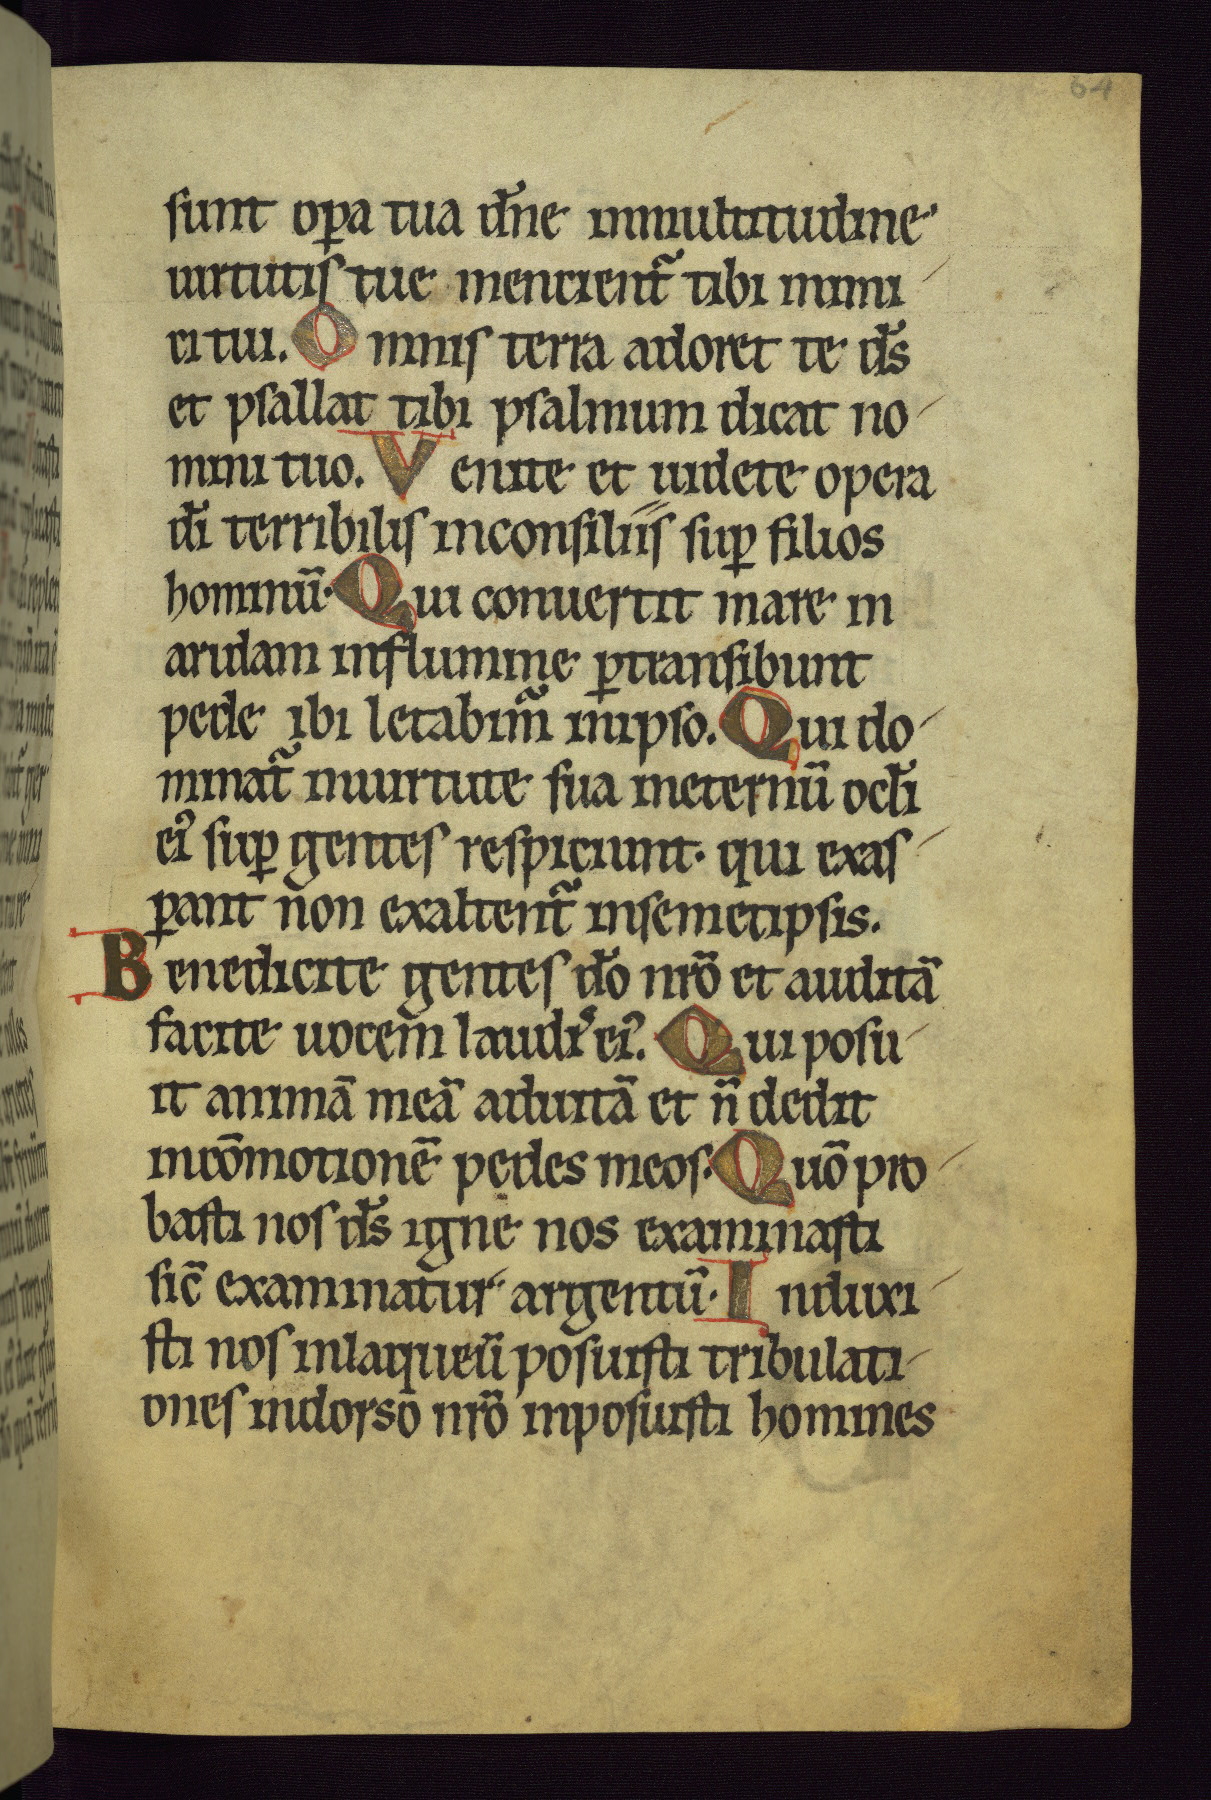 64
sunt oꝑa tua dn̄e inmultitudine
uirtutis tue mencient᷑ tibi inimi
ci tui. Omnis terra adoret te ds̄
et psallat tibi psalmum dicat no
mini tuo. Venite et uidete opera
dī terribilis inconsiliis suꝑ filios
hominū. Qui conuertit mare in
aridam influmine ꝑtransibunt
pede ibi letabim᷑ inipso. Qui do
minat᷑ inuirtute sua ineternū ocl̄i
ei᾽ suꝑ gentes respiciunt. qui exas
ꝑant non exaltent᷑ insemetipsis.
Benedicite gentes dō nr̄o et auditā
facite uocem laudis ei᾽. Qui posu
it animā meā aduitā et n̄ dedit
incōmotionē pedes meos. Quō pro
basti nos ds̄ igne nos examinasti
sic̄ examinatur argentū. Induxi
sti nos inlaqueū posuisti tribulati
ones indorso nr̄o inposuisti homines